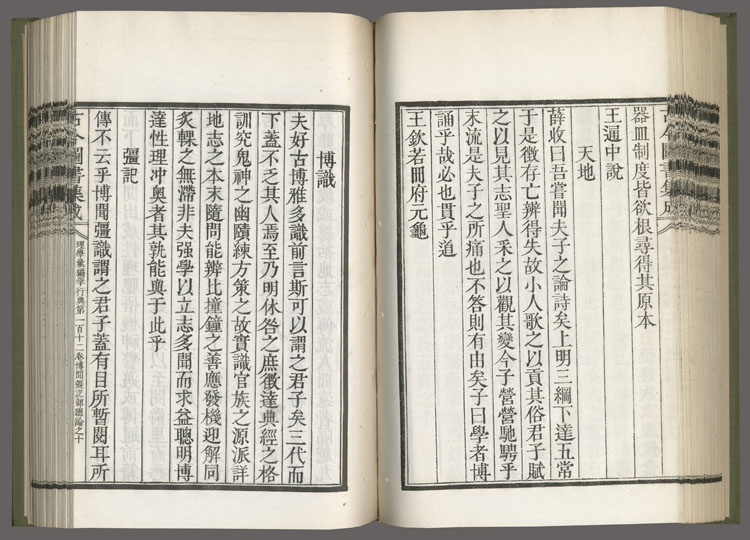 古今圖書集成
器皿制度皆欲根尋得其原本
王通中說
天地
薛收曰吾嘗聞夫子之論詩矣上明三綱下達五常
于是徵存亡辨得失故小人歌之以貢其俗君子賦
之以見其志聖人采之以觀其變今子營營馳騁乎
末流是夫子之所痛也不答則有由矣子曰學者博
誦乎哉必也貫乎道
王欽若冊府元龜
博識
夫好古博雅多識前言斯可以謂之君子矣三代而
下蓋不乏其人焉至乃明休咎之庶徵達典經之格
訓究鬼神之幽賾練方策之故實識官族之源派詳
地志之本末隨問能辨比撞鐘之善應發機迎解同
炙輠之無滯非夫强學以立志多聞而求益聰明博
達性理冲奧者其孰能與于此乎
彊記
傳不云乎博聞彊識謂之君子蓋有目所暫閱耳所
古今圖書集成
理學彙編學行典第一百十二卷博聞彊記部總論之十